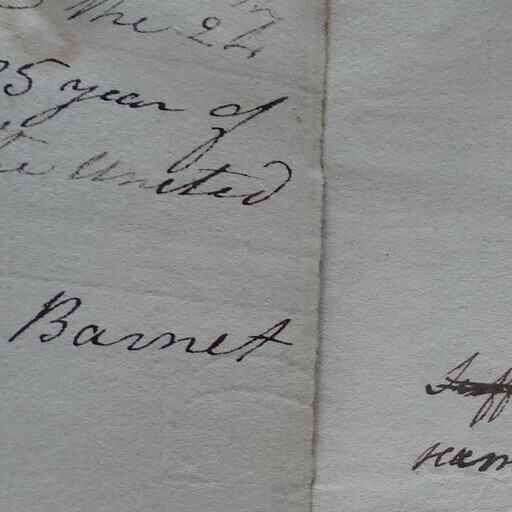 the 24
25 year of
the united
Barnet